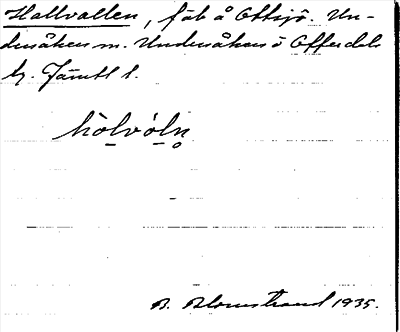 Hallvallen, fäb å Ottsjö. Un-
dersåkers sn. Undersåkers o Offerdals
tg. Jämtl l.
hòlvóln̥
B. Blomstrand 1935.